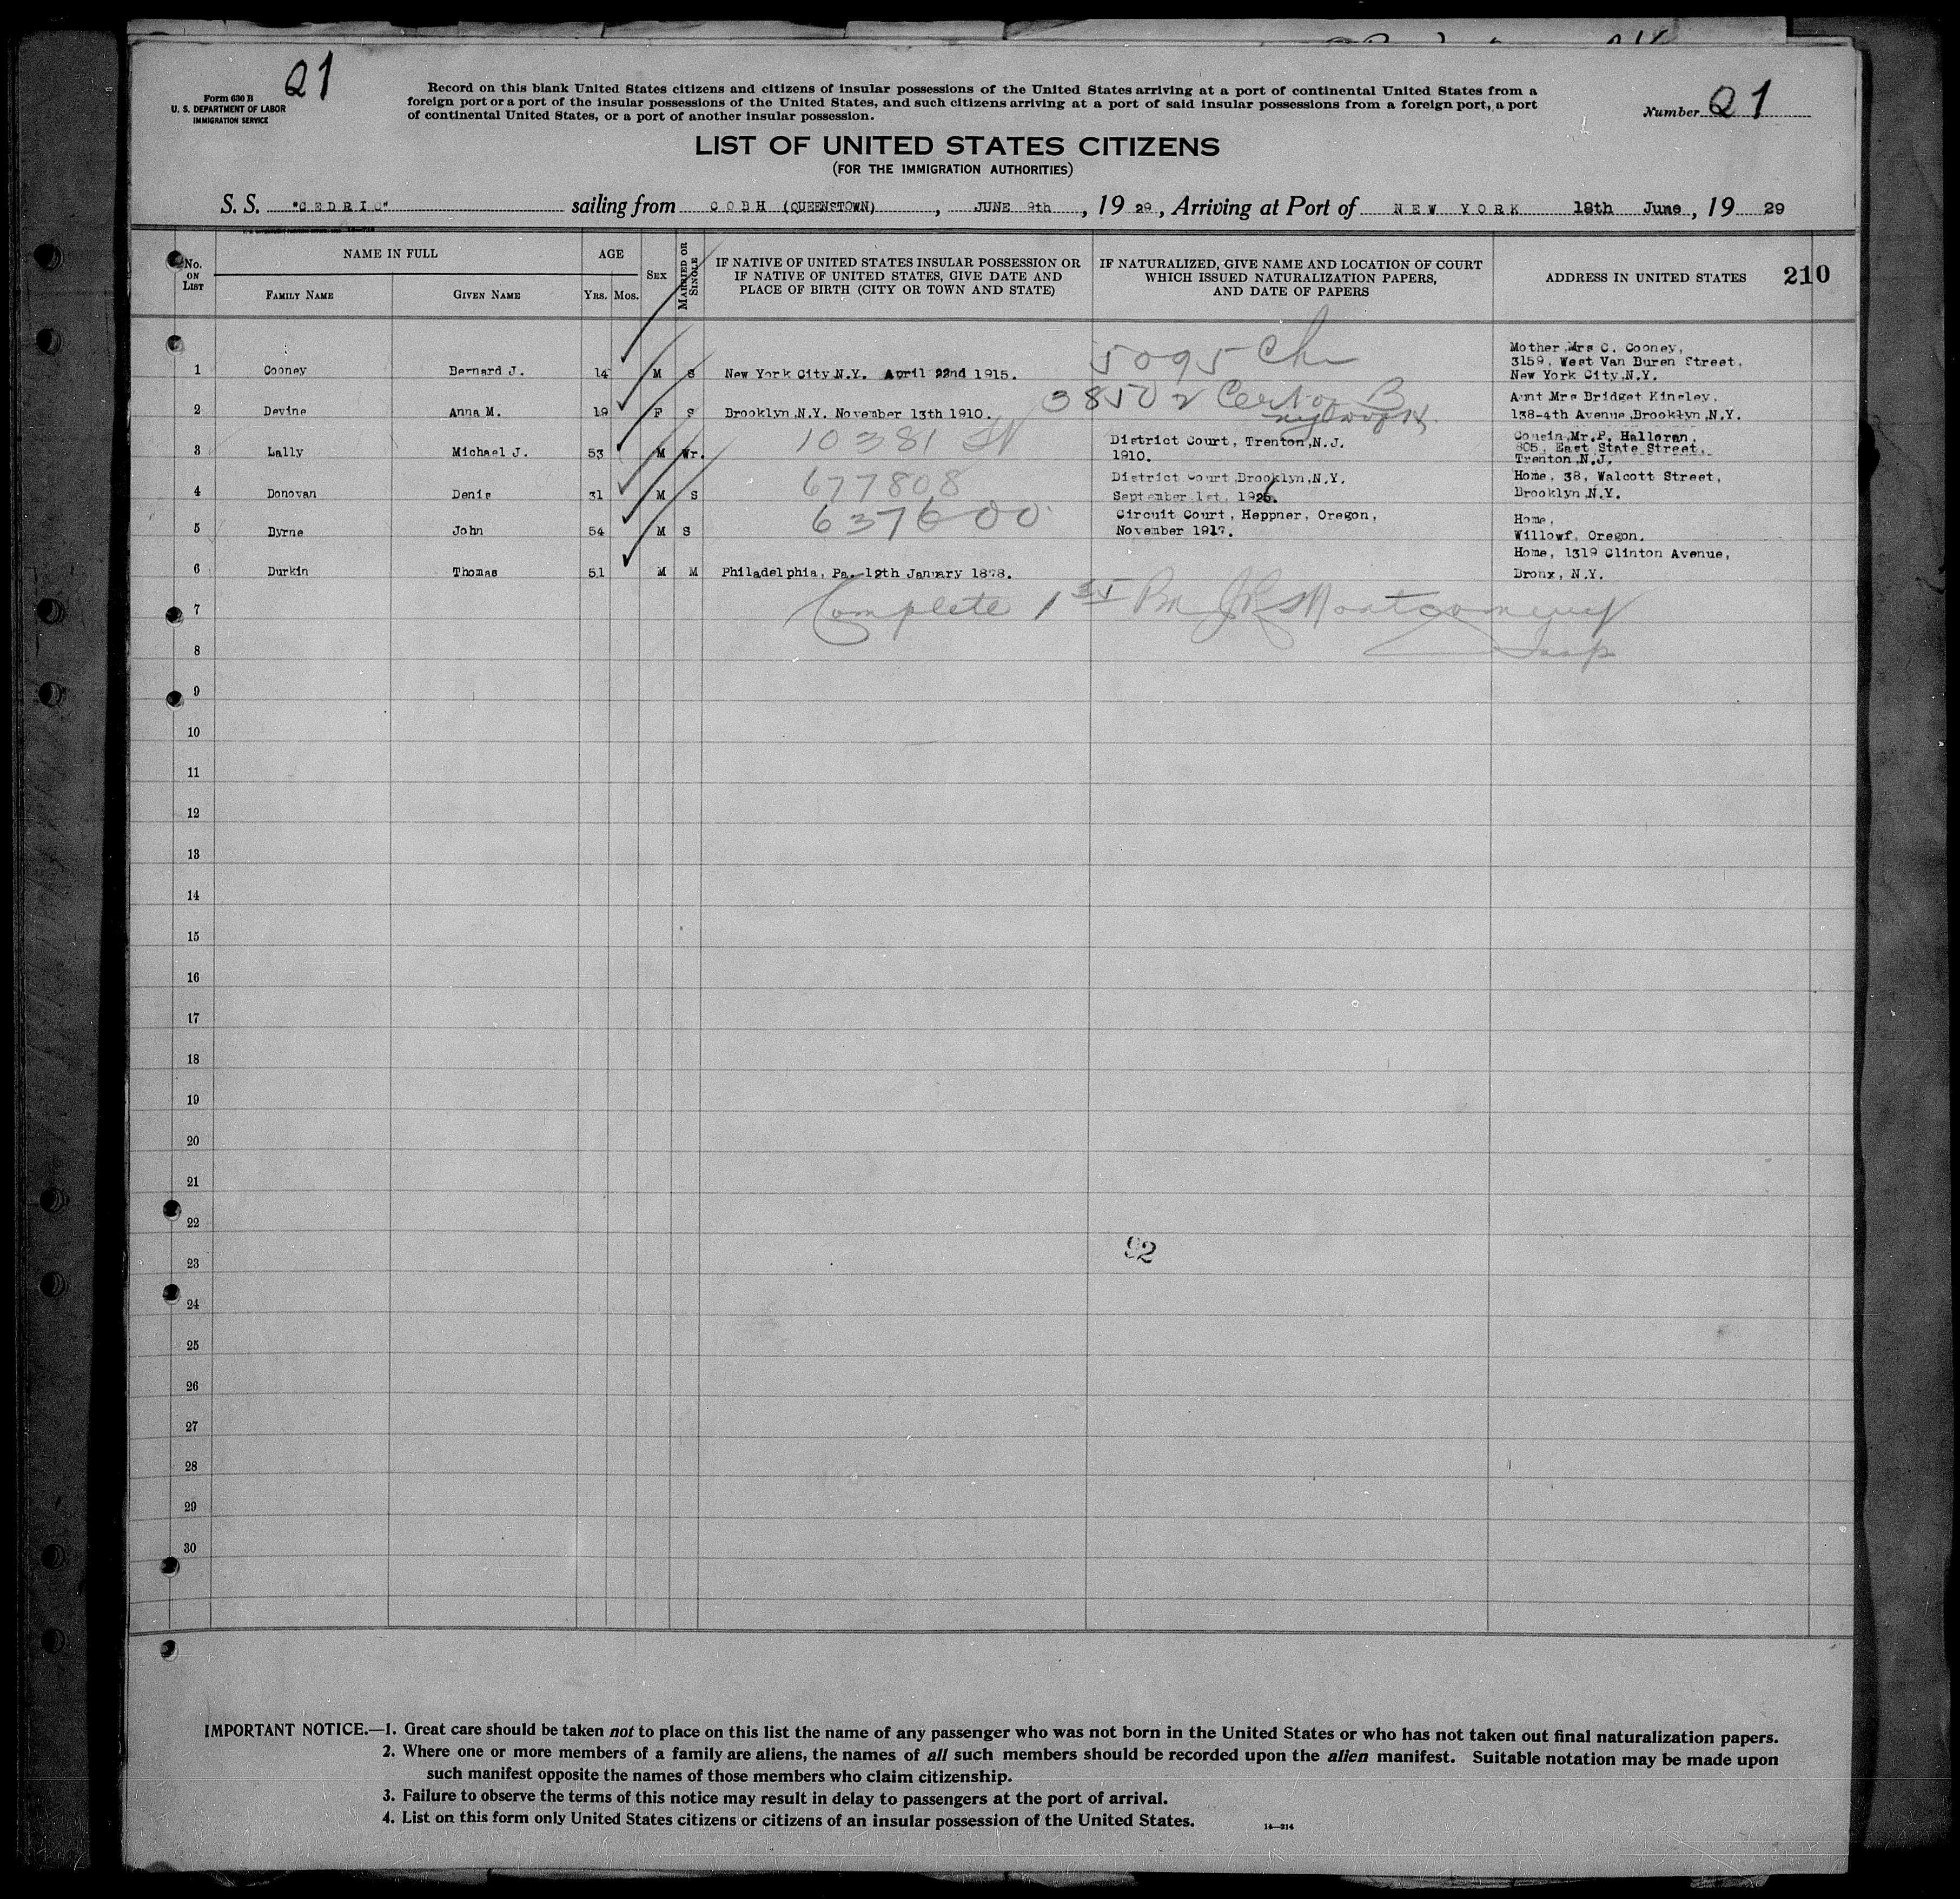 Q1
Form 630 B
U. S. DEPARTMENT OF LABOR
IMMIGRATION SERVICE
Record on this blank United States citizens and citizens of insular possessions of the United States arriving at a port of continental United States from a
foreign port or a port of the insular possessions of the United States, and such citizens arriving at a port of said insular possessions from a foreign port, a port
of continental United States, or a port of another insular possession.
Number Q1
LIST OF UNITED STATES CITIZENS
(FOR THE IMMIGRATION AUTHORITIES)
S. S. "CEDRIC" sailing from COBH (QUEENSTOWN), JUNE 9th, 1929, Arriving at Port of NEW YORK 18th June, 1929
No. ON LIST
NAME IN FULL
FAMILY NAME GIVEN NAME
AGE
YRS. MOS.
SEX
MARRIED OR SINGLE
IF NATIVE OF UNITED STATES INSULAR POSSESSION OR
IF NATIVE OF UNITED STATES, GIVE DATE AND
PLACE OF BIRTH (CITY OR TOWN AND STATE)
IF NATURALIZED, GIVE NAME AND LOCATION OF COURT
WHICH ISSUED NATURALIZATION PAPERS,
AND DATE OF PAPERS
ADDRESS IN UNITED STATES
210
5095
Mother Mrs C. Cooney,
3159, West Van Buren Street,
1 Cooney Bernard J. 14 M S New York City N.Y. April 22nd 1915. New York City,N.Y.
38502
Aunt Mrs Bridget Kinsley,
2 Devine Anna M. 19 F S Brooklyn N.Y. November 13th 1910. 138-4th Avenue,Brooklyn,N.Y.
10381
District Court, Trenton,N.J. Cousin Mr.P. Halloran,
3 Lally Michael J. 53 M Wr. 1910. 805, East State Street,
Trenton N.J.
677808
District Court Brooklyn,N.Y. Home, 38, Walcott Street,
4 Donovan Denis 31 M S September 1st, 1926. Brooklyn N.Y.
637600
Circuit Court, Heppner, Oregon, Home,
5 Byrne John 54 M S November 1917. Willowf, Oregon.
Home, 1319 Clinton Avenue,
6 Durkin Thomas 51 M M Philadelphia, Pa. 19th January 1878. Bronx, N.Y.
Complete 1st Montgomery
Insp
7
8
9
10
11
12
13
14
15
16
17
18
19
20
21
22
92
23
24
25
26
27
28
29
30
IMPORTANT NOTICE.—1. Great care should be taken not to place on this list the name of any passenger who was not born in the United States or who has not taken out final naturalization papers.
2. Where one or more members of a family are aliens, the names of all such members should be recorded upon the alien manifest. Suitable notation may be made upon
such manifest opposite the names of those members who claim citizenship.
3. Failure to observe the terms of this notice may result in delay to passengers at the port of arrival.
4. List on this form only United States citizens or citizens of an insular possession of the United States.
14—214